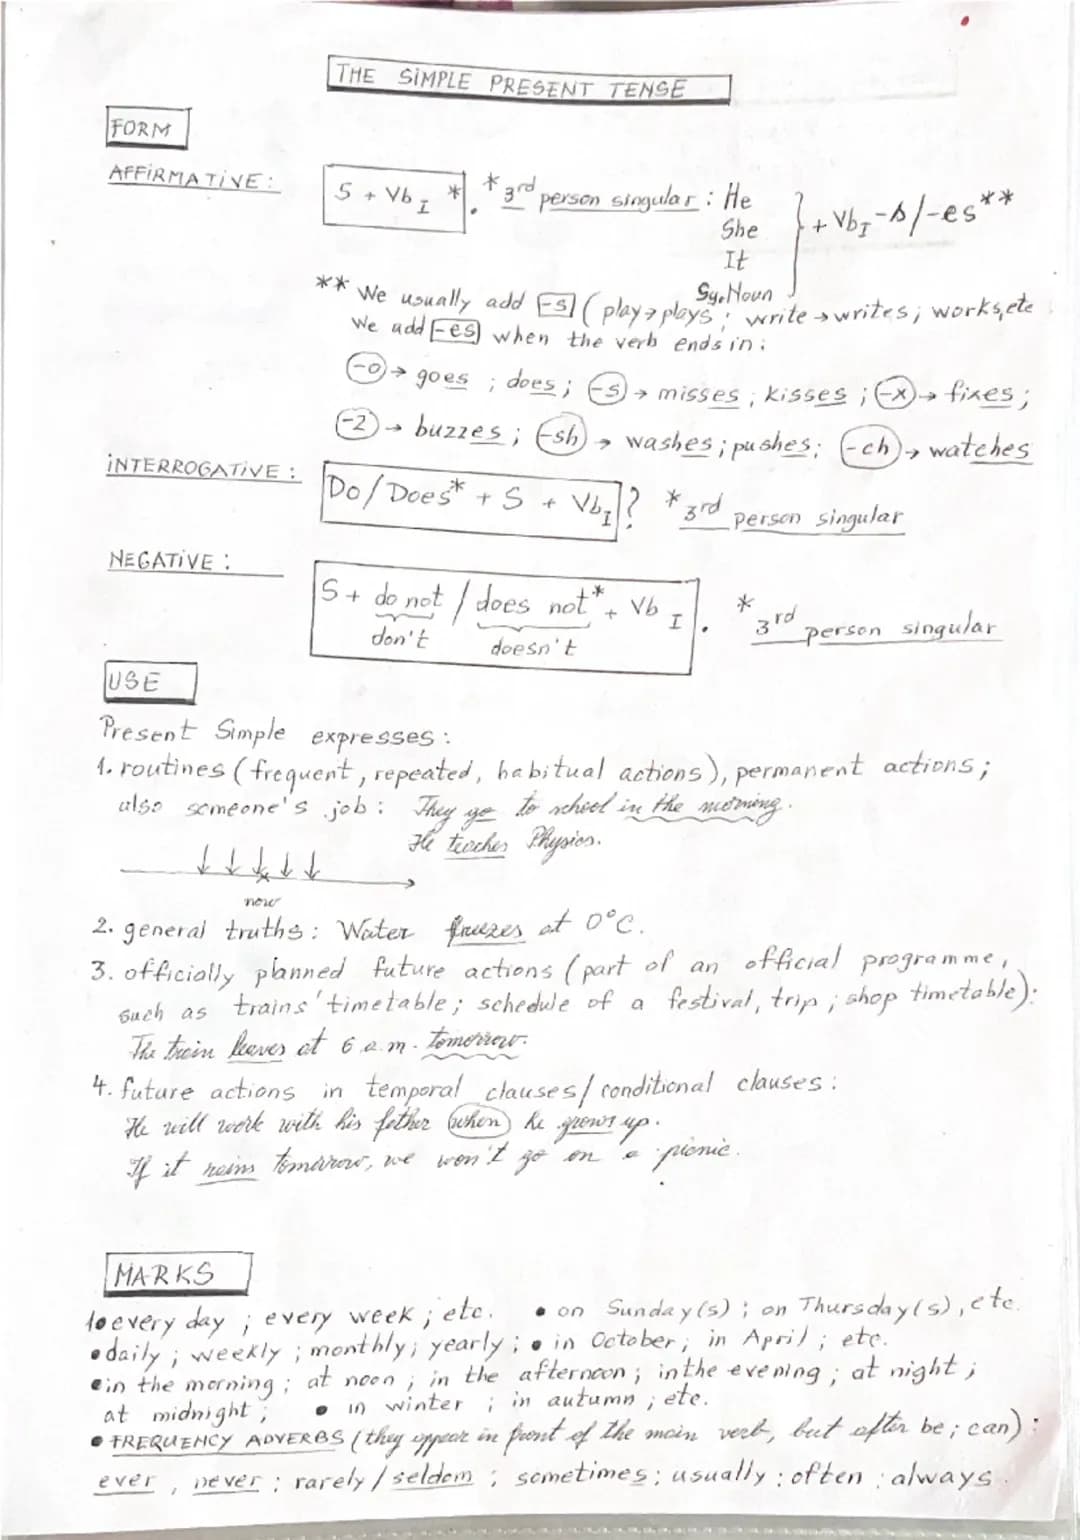 THE SIMPLE PRESENT TENSE
FORM
AFFIRMATIVE: S + Vb I *. * 3rd person singular: He
She
It
Sg. Noun } + Vb I -s/-es**
** We usually add -s (play → plays; write → writes; works, etc
We add -es when the verb ends in:
-o → goes; does; -s → misses; kisses; -x → fixes;
-z → buzzes; -sh → washes; pushes; -ch → watches
INTERROGATIVE: Do/Does* + S + Vb I ? * 3rd person singular
NEGATIVE: S + do not / does not* + Vb I . * 3rd person singular
don't doesn't
USE
Present Simple expresses:
1. routines (frequent, repeated, habitual actions), permanent actions;
also someone's job: They go to school in the morning.
He teaches Physics.
now
2. general truths: Water freezes at 0°C.
3. officially planned future actions (part of an official programme,
such as trains' timetable; schedule of a festival, trip; shop timetable):
The train leaves at 6 a.m. tomorrow.
4. future actions in temporal clauses/conditional clauses:
He will work with his father when he grows up.
If it rains tomorrow, we won't go on a picnic.
MARKS
• every day; every week; etc. • on Sunday(s); on Thursday(s), etc.
• daily; weekly; monthly; yearly; • in October; in April; etc.
• in the morning; at noon; in the afternoon; in the evening; at night;
at midnight; • in winter; in autumn; etc.
• FREQUENCY ADVERBS (they appear in front of the main verb, but after be; can):
ever, never; rarely/seldom; sometimes; usually; often; always